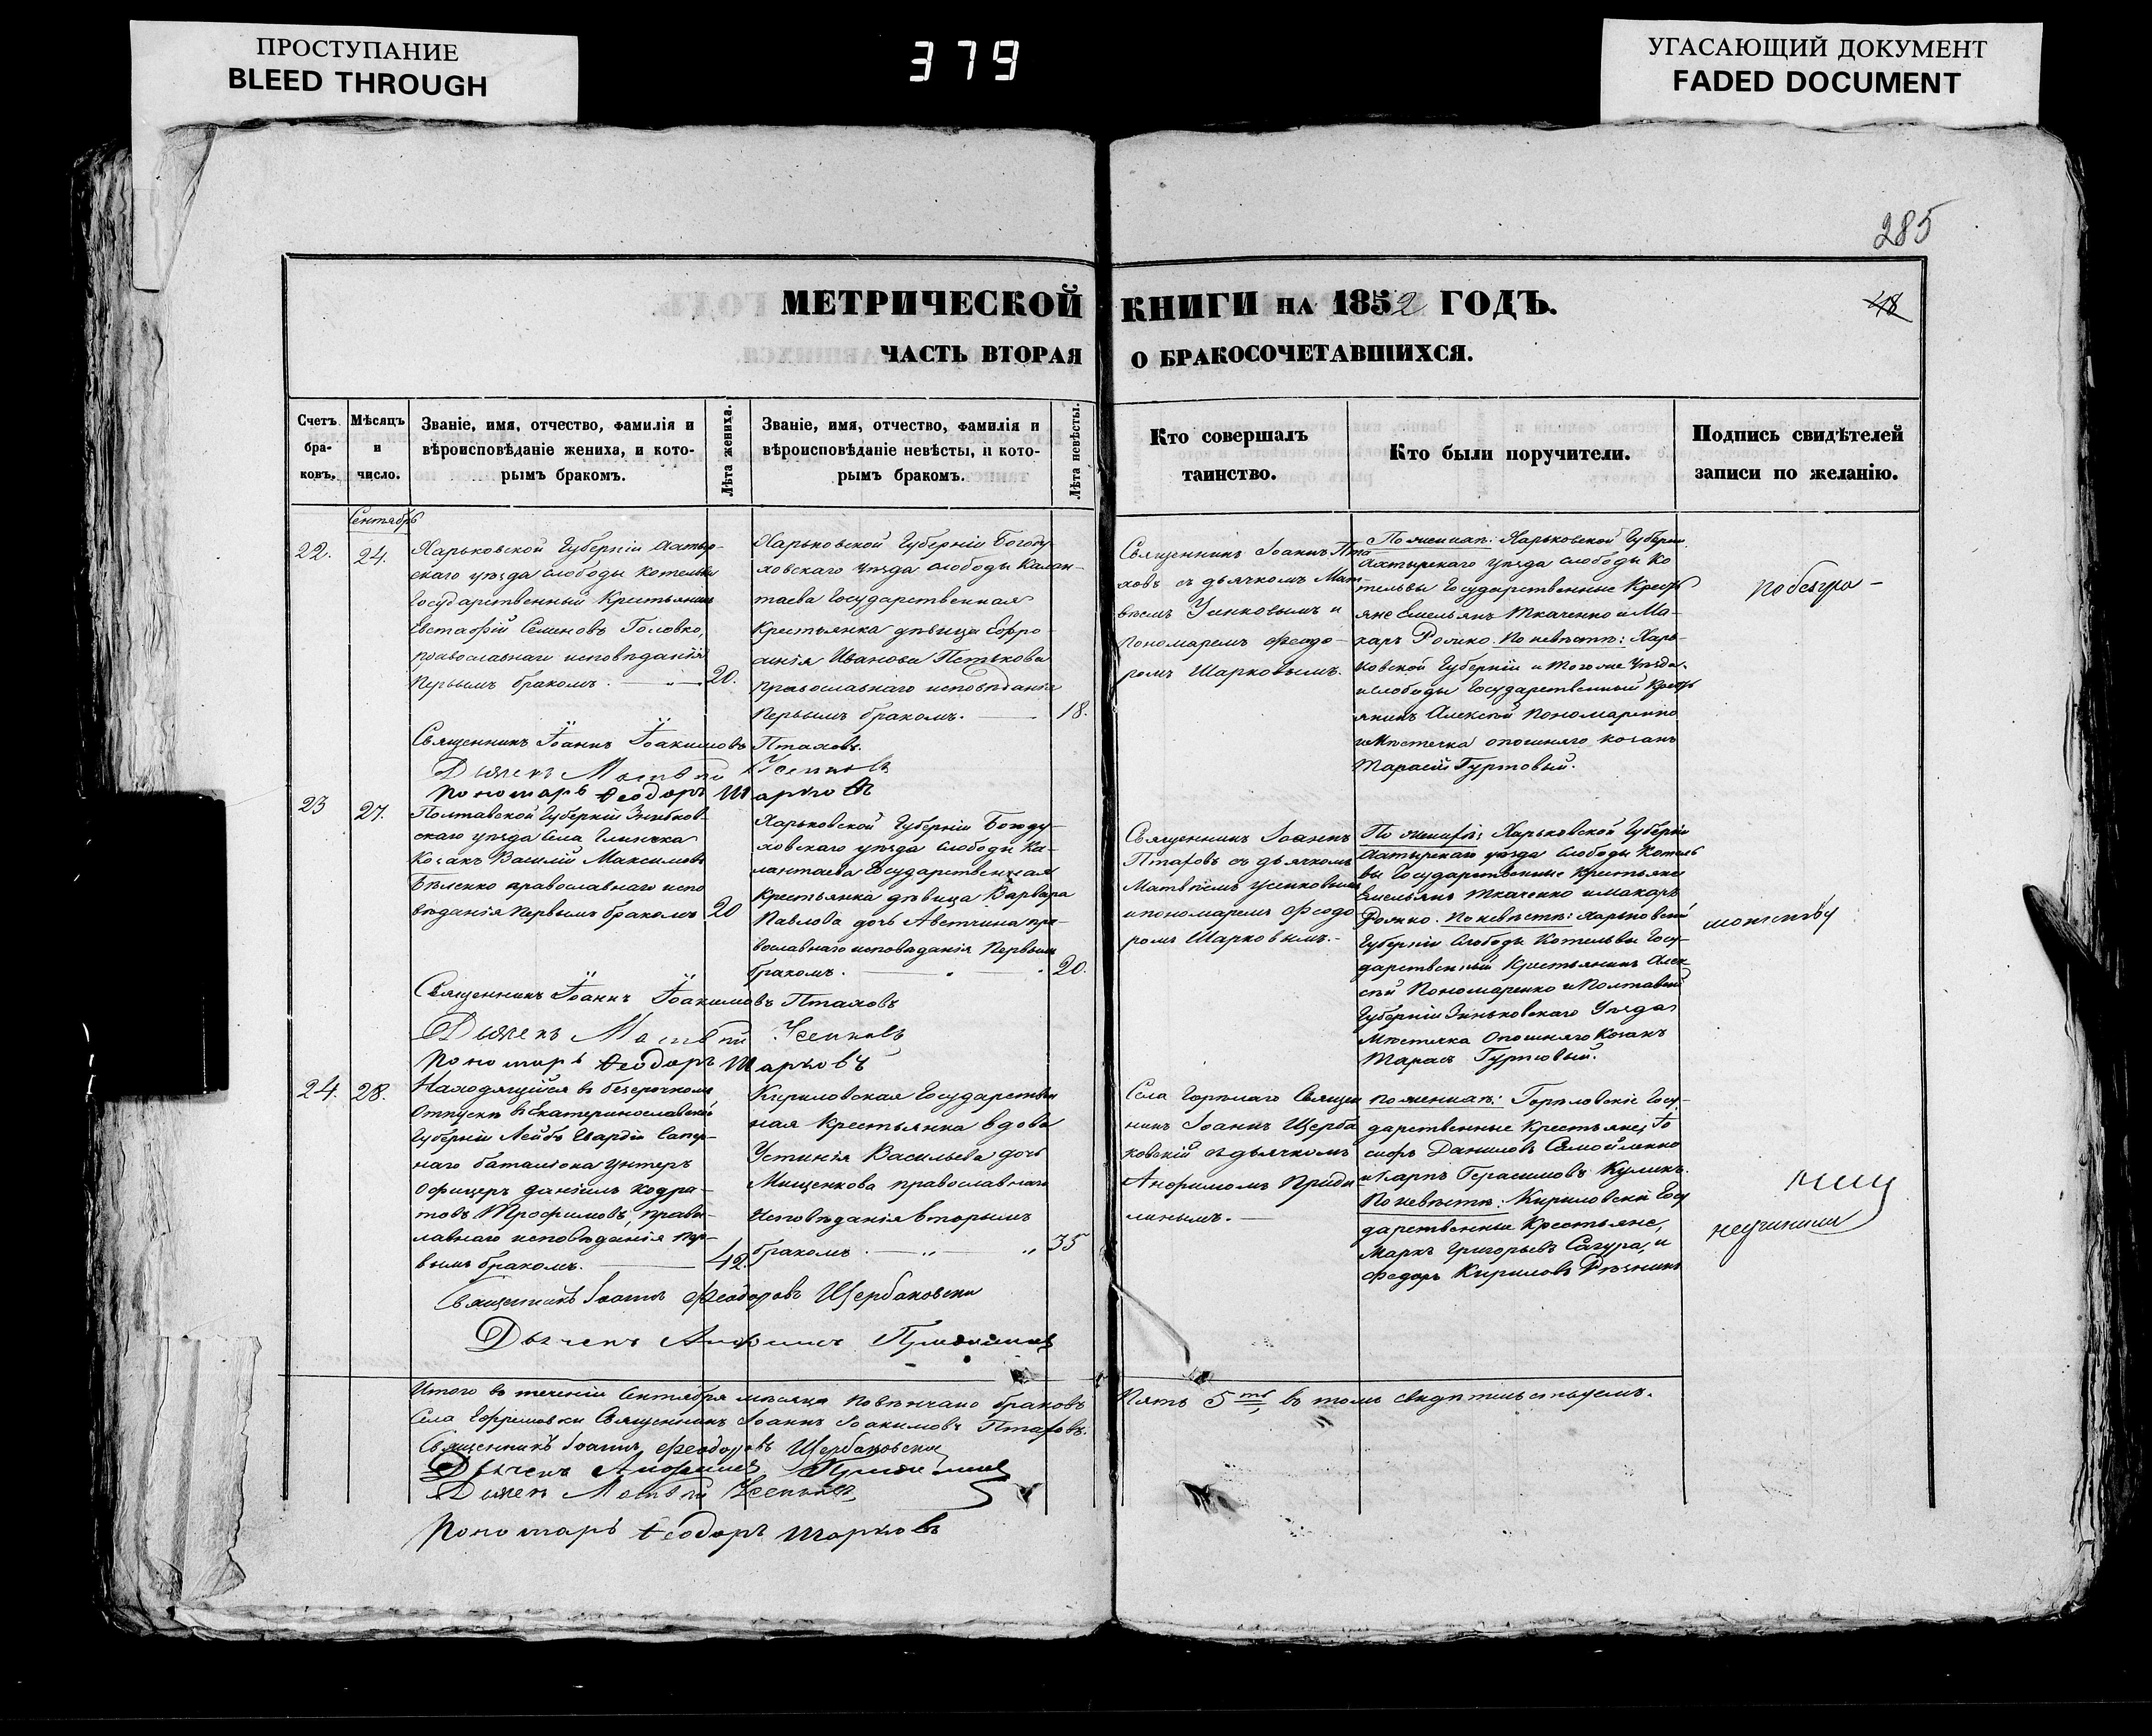 ПРОСТУПАНИЕ
BLEED THROUGH
379
УГАСАЮЩИЙ ДОКУМЕНТ
FADED DOCUMENT
285
МЕТРИЧЕСКОЙ КНИГИ НА 1852 ГОДЪ.
48
ЧАСТЬ ВТОРАЯ О БРАКОСОЧЕТАВШИХСЯ.
Счетъ бра-ковъ.
Мѣсяцъ и число.
Званіе, имя, отчество, фамилія и
вѣроисповѣданіе жениха, и кото-
рымъ бракомъ.
Лѣта жениха.
Званіе, имя, отчество, фамилія и
вѣроисповѣданіе невѣсты, и кото-
рымъ бракомъ.
Лѣта невѣсты.
Кто совершалъ
таинство.
Кто были поручители.
Подпись свидѣтелей
записи по желанію.
Сентябрь
22.
24.
Харьковской Губерніи Ахтыр-
скаго уѣзда слободы Котельвы
Государственный Крестьянинъ
Евстафій Семеновъ Головко,
православнаго исповѣданія
первымъ бракомъ.
20.
Харьковской Губерніи Богоду-
ховскаго уѣзда слободы Калан-
таева Государственная
Крестьянка дѣвица Ефро-
синія Иванова Петькова
православнаго исповѣданія
первымъ бракомъ.
18.
Священникъ Іоаннъ Пта-
ховъ съ дьячкомъ Мат-
вѣемъ Усиковымъ и
пономаремъ Феодо-
ромъ Шарковымъ.
По женихѣ: Харьковской Губерніи
Ахтырскаго уѣзда слободы Ко
тельвы Государственные Кресть
яне Емельянъ Ткаченко и Ма-
каръ Рожко. По невѣстѣ: Харь-
ковской Губерніи и тогоже уѣзда
и слободы Государственный Кресть
янинъ Алексѣй Пономаренко
и Мѣстечка Опошняго козакъ
Тарасій Гуртовый.
Священникъ Іоаннъ Іоакимовъ Птаховъ.
Дьячекъ Матвѣй Усиковъ
Пономарь Феодоръ Шарковъ
23
27.
Полтавской Губерніи Зиньков-
скаго уѣзда Села
Козакъ Василій Максимовъ
Бѣленко православнаго испо
вѣданія первымъ бракомъ
20
Харьковской Губерніи Богоду-
ховскаго уѣзда слободы Ка-
лантаева Государственная
Крестьянка дѣвица Варвара
Павлова дочь пра-
вославнаго исповѣданія первымъ
бракомъ.
20.
Священникъ Іоаннъ
Птаховъ съ дьячкомъ
Матвѣемъ Усиковымъ
и пономаремъ Феодо
ромъ Шарковымъ.
По женихѣ: Харьковской Губерніи
Ахтырскаго уѣзда слободы Котель
вы Государственные Крестьяне
Емельянъ Ткаченко и Макаръ
Рожко. По невѣстѣ: Харьковской
Губерніи Слободы Котельвы Госу-
дарственный Крестьянинъ Алек-
сѣй Пономаренко и Полтавской
Губерніи Зиньковскаго Уѣзда
Мѣстечка Опошняго Козакъ
Тарасъ Гуртовый.
Священникъ Іоаннъ Іоакимовъ Птаховъ
Дьячекъ Матвѣй Усиковъ
Пономарь Феодоръ Шарковъ
24.
28.
Находящійся въ безсрочномъ
Отпуску въ Екатеринославской
Губерніи Лейбъ Гвардіи Сапер-
наго баталіона Унтеръ
Офицеръ Даніилъ Кодра-
товъ Трофимовъ, право-
славнаго исповѣданія пер-
вымъ бракомъ.
42.
Кириловская Государствен
ная Крестьянка вдова
Устинія Васильева дочь
Мищенкова православнаго
исповѣданія вторымъ
бракомъ
35
Села Горѣлаго Священ
никъ Іоаннъ Щерба
ковскій съ дьячкомъ
Анфимомъ
По женихѣ: Горѣловскіе Госу-
дарственные Крестьяне, Іо
сифъ Даниловъ Самойленко
и Карпъ Герасимовъ Куликъ.
По невѣстѣ: Кириловскіе Госу
дарственные Крестьяне,
Маркъ Григорьевъ Сагура, и
Федоръ Кириловъ Рѣзникъ
Священникъ Іоаннъ Феодоровъ Щербаковскій
Дьячекъ Анфимъ
Итого въ теченіи Сентября мѣсяца повѣнчано браковъ Пять 5 ть въ томъ свидѣтельствуемъ.
Села Ефремовки Священникъ Іоаннъ Іоакимовъ Птаховъ.
Священникъ Іоаннъ Феодоровъ Щербаковскій
Дьячекъ Анфимъ
Дьячекъ Матвѣй Усиковъ
Пономарь Феодоръ Шарковъ